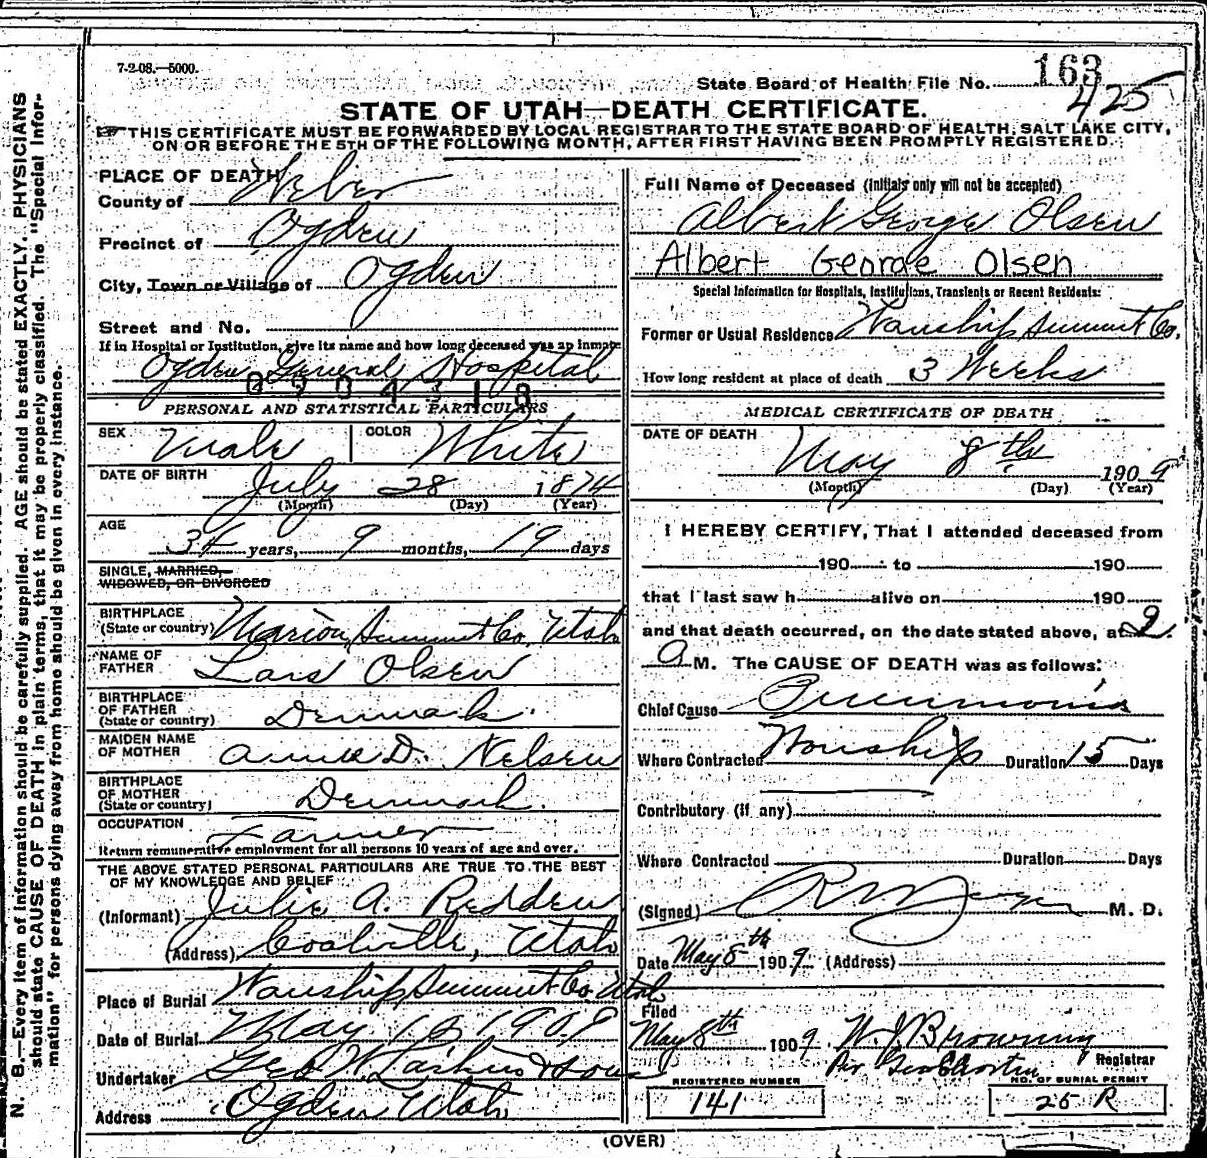 7-2-08.—5000.
State Board of Health File No. 163
425
STATE OF UTAH—DEATH CERTIFICATE.
THIS CERTIFICATE MUST BE FORWARDED BY LOCAL REGISTRAR TO THE STATE BOARD OF HEALTH, SALT LAKE CITY,
ON OR BEFORE THE 5TH OF THE FOLLOWING MONTH, AFTER FIRST HAVING BEEN PROMPTLY REGISTERED.
N. B.—Every item of information should be carefully supplied. AGE should be stated EXACTLY. PHYSICIANS
should state CAUSE OF DEATH in plain terms, that it may be properly classified. The "Special Infor-
mation" for persons dying away from home should be given in every instance.
PLACE OF DEATH
County of Weber
Precinct of Ogden
City, Town or Village of Ogden
Street and No.
If in Hospital or Institution, give its name and how long deceased was an inmate
Ogden General Hospital
PERSONAL AND STATISTICAL PARTICULARS
SEX Male COLOR White
DATE OF BIRTH July 28 1874
(Month) (Day) (Year)
AGE
34 years, 9 months, 19 days
SINGLE, MARRIED,
WIDOWED, OR DIVORCED
BIRTHPLACE
(State or country) Marion Summit Co. Utah
NAME OF
FATHER Lars Olsen
BIRTHPLACE
OF FATHER
(State or country) Denmark.
MAIDEN NAME
OF MOTHER Annie D. Nelsen
BIRTHPLACE
OF MOTHER
(State or country) Denmark.
OCCUPATION Farmer
Return remunerative employment for all persons 10 years of age and over.
THE ABOVE STATED PERSONAL PARTICULARS ARE TRUE TO THE BEST
OF MY KNOWLEDGE AND BELIEF
(Informant) Julie A. Redden
(Address) Coalville, Utah
Place of Burial Wanship Summit Co. Utah
Date of Burial May 1909
Undertaker Geo W. Larkin & Sons
Address Ogden Utah
Full Name of Deceased (Initials only will not be accepted)
Albert George Olsen
Albert George Olsen
Special Information for Hospitals, Institutions, Transients or Recent Residents:
Former or Usual Residence Wanship Summit Co.
How long resident at place of death 3 Weeks
MEDICAL CERTIFICATE OF DEATH
DATE OF DEATH
May 8th 1909
(Month) (Day) (Year)
I HEREBY CERTIFY, That I attended deceased from
190 to 190
that I last saw h alive on 190
and that death occurred, on the date stated above, at 2.
A M. The CAUSE OF DEATH was as follows:
Chief Cause Pneumonia
Where Contracted Wanship Duration 15 Days
Contributory (if any)
Where Contracted Duration Days
(Signed) M. D.
Date May 8th 1909 (Address)
Filed
May 8th 1909 W. J. Browning
Per Registrar
REGISTERED NUMBER
141
NO. OF BURIAL PERMIT
25 R
(OVER)